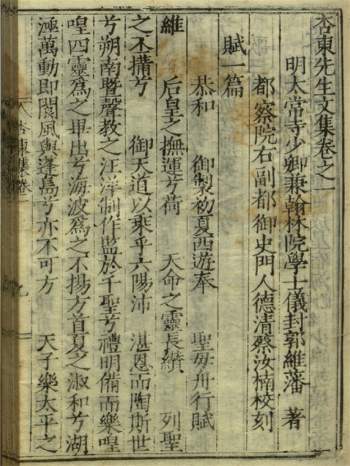 杏東先生文集卷之一
明太常寺少卿兼翰林院學士儀封郭維藩 著
都察院右副都御史門人德清蔡汝楠校刻
賦一篇
恭和 御製初夏西遊奉 聖母舟行賦
維 后皇之撫運兮荷 天命之靈長纘 列聖
之丕搆兮 御天道以乘乎六陽沛 湛恩而陶斯世
兮朔南曁聲教之汪洋制作監於千聖兮禮明備而樂喤
喤四靈爲之畢出兮海波爲之不揚方首夏之淑和兮湖
涵萬動即閬風與蓬島兮亦不可方 天子樂太平之